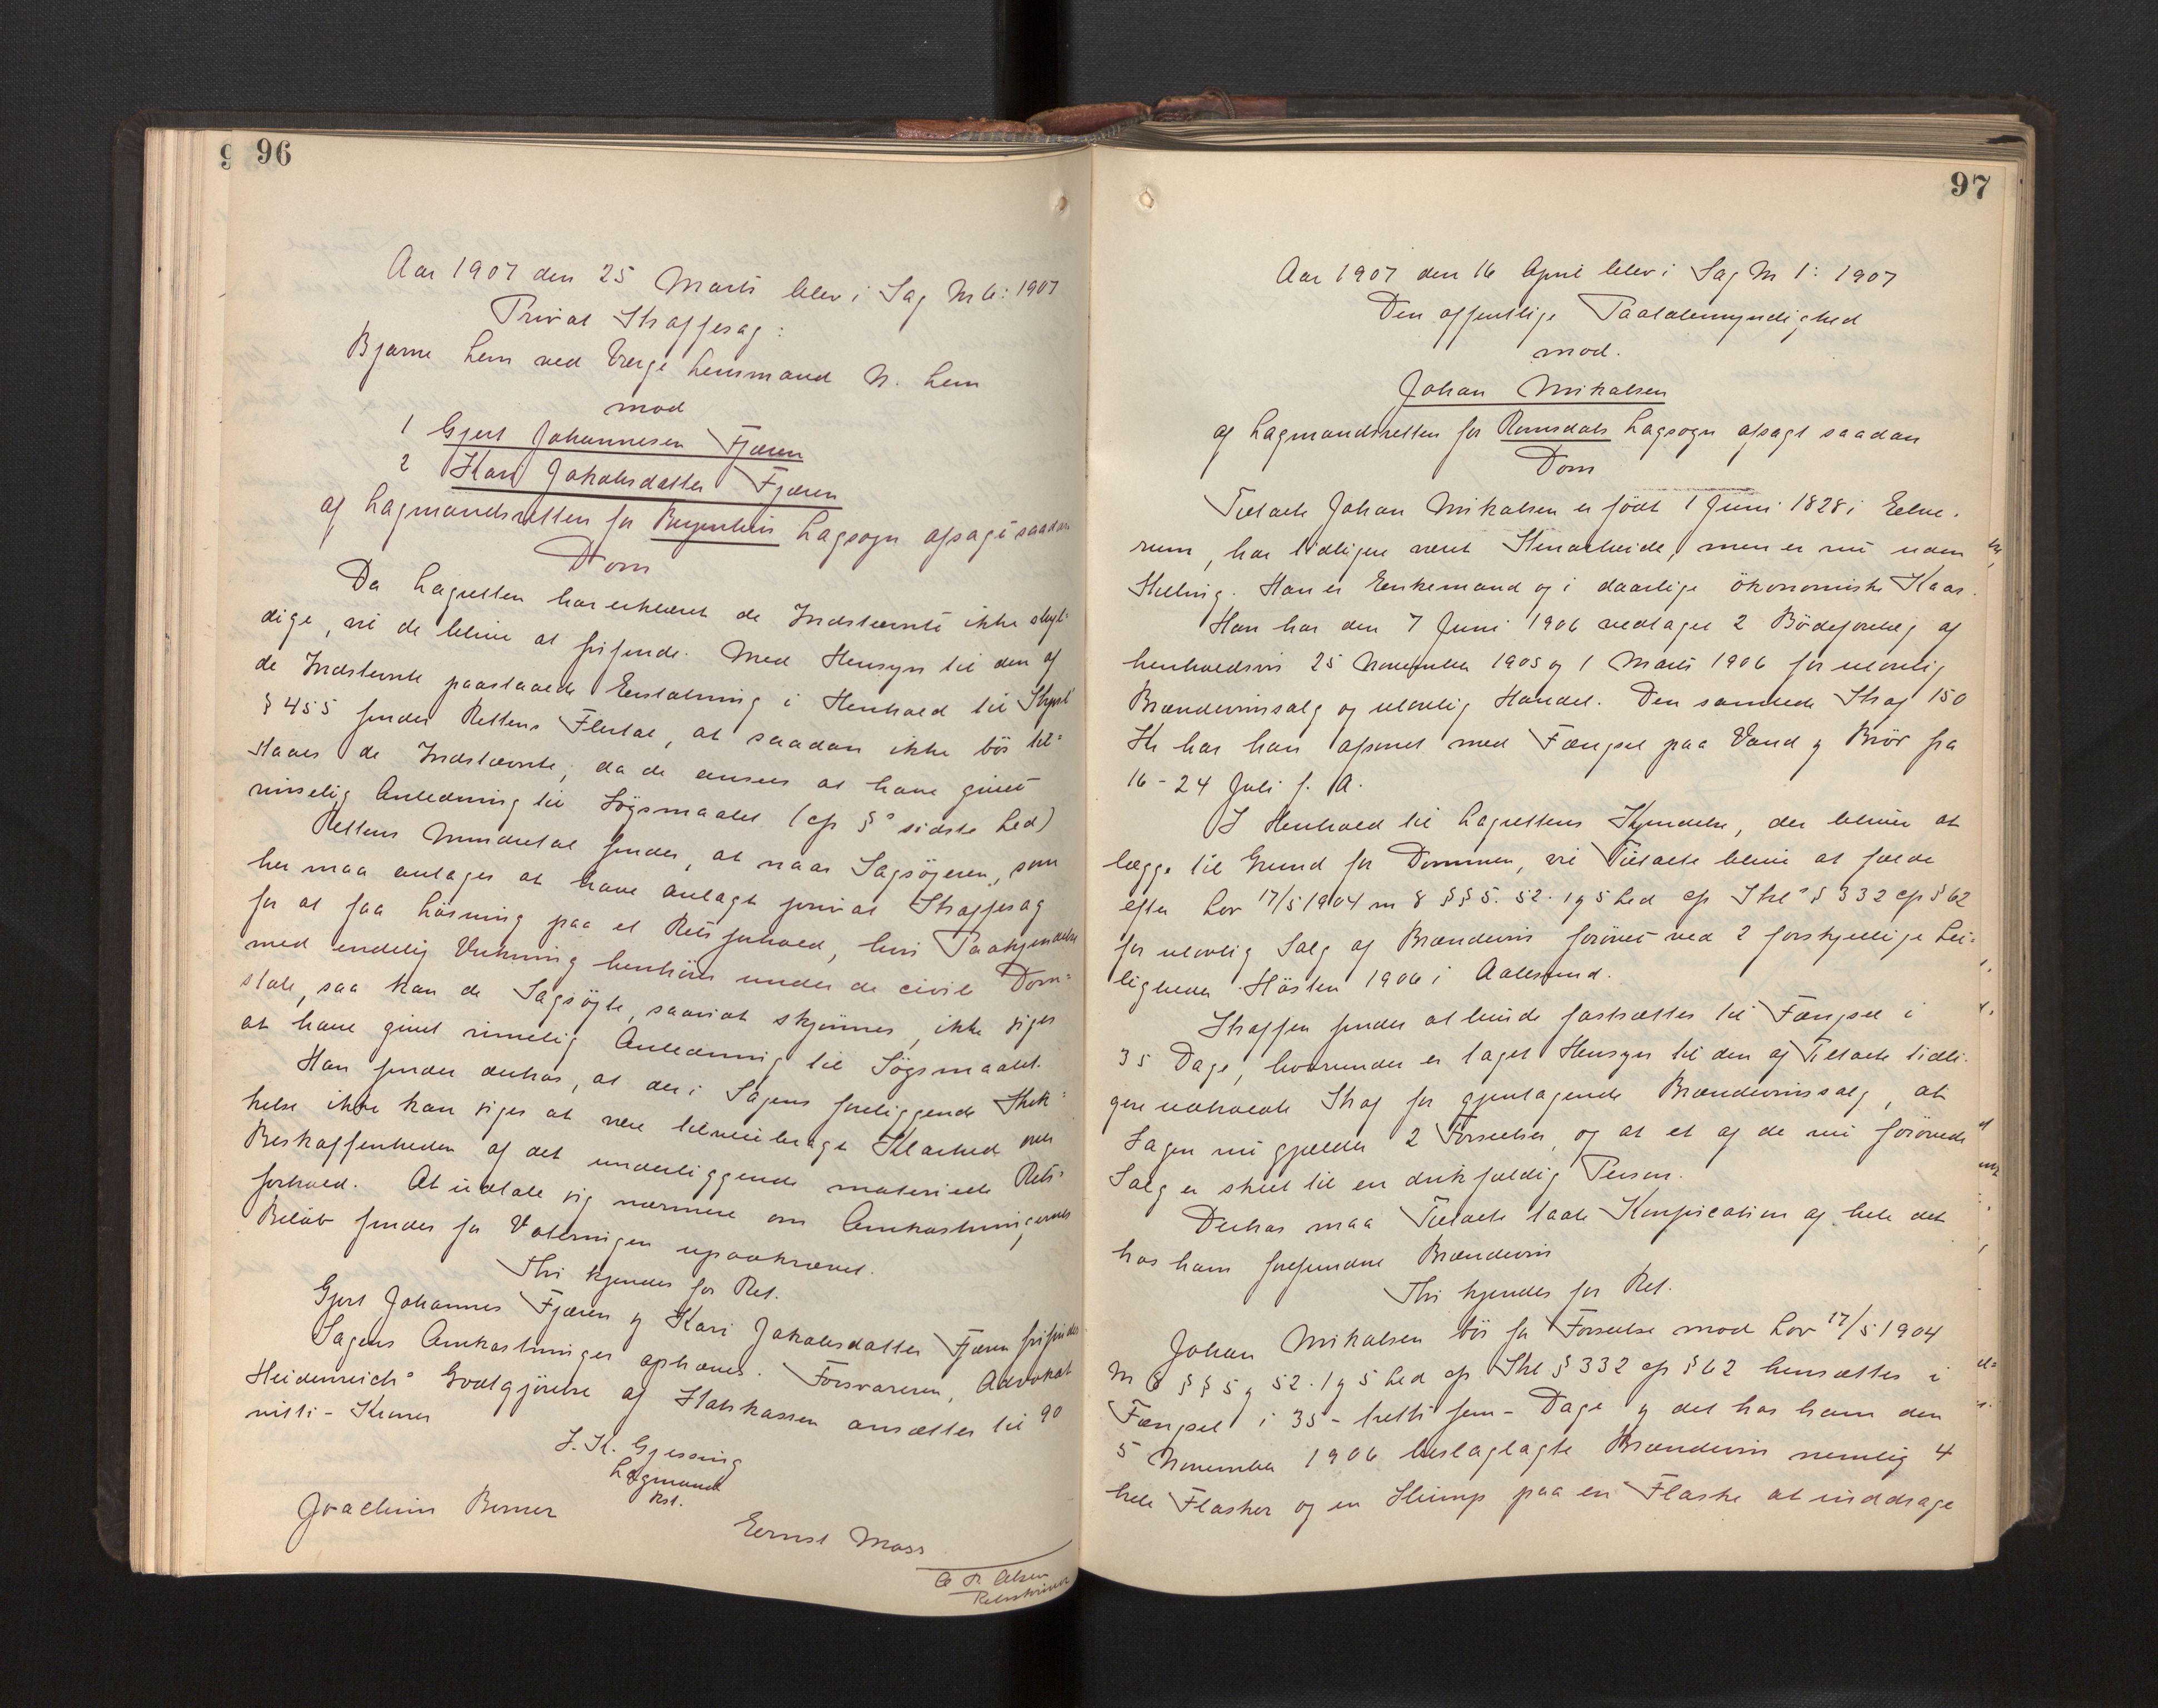 96
Aar 1907 den 25 Marts blev i Sag No 6: 1907
Privat Straffesag:
Bjarne Lem ved Verge Lensmand N. Lem
mod
1 Gjert Johannesen Fjæren
2 Kari Jakobsdatter Fjæren
af Lagmandsretten for Bergenhus Lagsogn afsagt saadan
Dom
Da Lagretten har erklæret de Indstevnte ikke skyl=
dige, vil de blive at frifinde. Med Hensyn til den af
de Indstevnte paastaaede Erstatning i Henhold til Strprl
§ 455 finder Rettens Flertal, at saadan ikke bör til=
staaes de Indstævnte, da de ansees at have givet
rimelig Anledning til Sögsmaalet (cfr §s sidste Led)
Rettens Mindretal finder, at naar Sagsögeren, som
her maa antages at have anlagt privat Straffesag
for at faa Lösning paa et Retsforhold, hvis Paakjendelse
med endelig Virkning henhörer under de civile Dom=
stole, saa kan de Sagsögte, saavidt skjönnes, ikke siges
at have givet rimelig Anledning til Sögsmaalet.
Han finder derhos, at der i Sagens foreliggende Skik=
kelse ikke kan siges at være tilveiebragt Klarhed over
Beskaffenheden af det underliggende materielle Rets=
forhold. At udtale sig nærmere om Omkostningernes
Belöb findes for Voteringen upaakrævet.
Thi kjendes for Ret.
Gjert Johannes Fjæren og Kari Jakobsdatter Fjæren frifindes
Sagens Omkostninger ophæves. Forsvareren, Advokat
Heidenreichs Godtgjörelse af Statskassen ansættes til 90
nitti - Kroner
J. K. Gjessing
Lagmand
kst.
Joachim Berner
Ernst Mass
Retsskriver
97
Aar 1907 den 16 April blev i Sag No 1: 1907
Den offentlige Paatalemyndighed
mod.
Johan Mikalsen
af Lagmandsretten for Romsdals Lagsogn afsagt saadan
Dom
Tiltalte Johan Mikalsen er födt 1 Juni 1828 i Elve.
rum, har tidligere været Stenarbeider, men er nu uden
Stilling. Han er Enkemand og i daarlige ökonomiske Kaar.
Han har den 7 Juni 1906 vedtaget 2 Bödeforelæg af
henholdsvis 25 November 1905 og 1 Marts 1906 for ulovlig
Brændevinssalg og ulovlig Handel. Den samlede Straf 150
Kr har han afsonet med Fængsel paa Vand og Bröd fra
16 - 24 Juli s. A.
I Henhold til Lagrettens Kjendelse, der bliver at
lægge til Grund for Dommen, vil Tiltalte blive at fælde
efter Lov 17/5 1904 no 8 §§ 5. 52. 1 og 5 Led cfr Strls § 332 cfr § 62
for ulovlig Salg af Brændevin forövet ved 2 forskjellige Lei=
ligheder Hösten 1906 i Aalesund.
Straffen findes at burde fastsættes til Fængsel i
35 Dage, hvorunder er taget Hensyn til den af Tiltalte tidli.
gere udholdte Straf for gjentagende Brændevinssalg, at
Sagen nu gjælder 2 Forseelser, og at et af de nu forövede
Salg er skeet til en drikfældig Person.
Derhos maa Tiltalte taale Konfiscation af hele det
hos ham forefundne Brændevin
Thi kjendes for Ret.
Johan Mikalsen bör for Forseelse mod Lov 17/5 1904
No 8 §§ 5 og 52. 1 og 5 Led cfr Strl § 332 cfr § 62 hensættes i
Fængsel i 35 - tretti fem - Dage og det hos ham den
5 November 1906 beslaglagte Brændevin nemlig 4
hele Flasker og en Slump paa en Flaske at inddrage